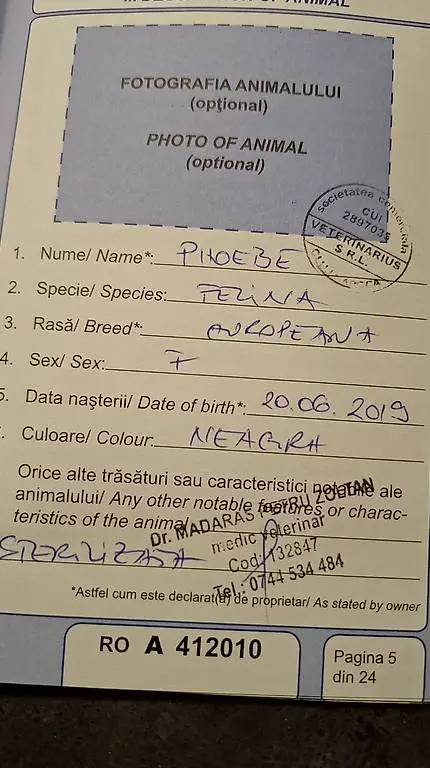 FOTOGRAFIA ANIMALULUI
(opțional)
PHOTO OF ANIMAL
(optional)
societatea comerciala
CUI
2897035
VETERINARIUS
S.R.L.
1. Nume/ Name*: PHOEBE
2. Specie/ Species: FELINA
3. Rasă/ Breed*: EUROPEANA
4. Sex/ Sex: F
5. Data nașterii/ Date of birth*: 20.06.2019
Culoare/ Colour: NEAGRA
Orice alte trăsături sau caracteristici notabile ale
animalului/ Any other notable features or charac-
teristics of the animal
STERILIZATA
Dr. MADARAS PETRU ZOLTAN
medic veterinar
Cod 132847
Tel.: 0744 534 484
*Astfel cum este declarat(ă) de proprietar/ As stated by owner
RO A 412010
Pagina 5
din 24